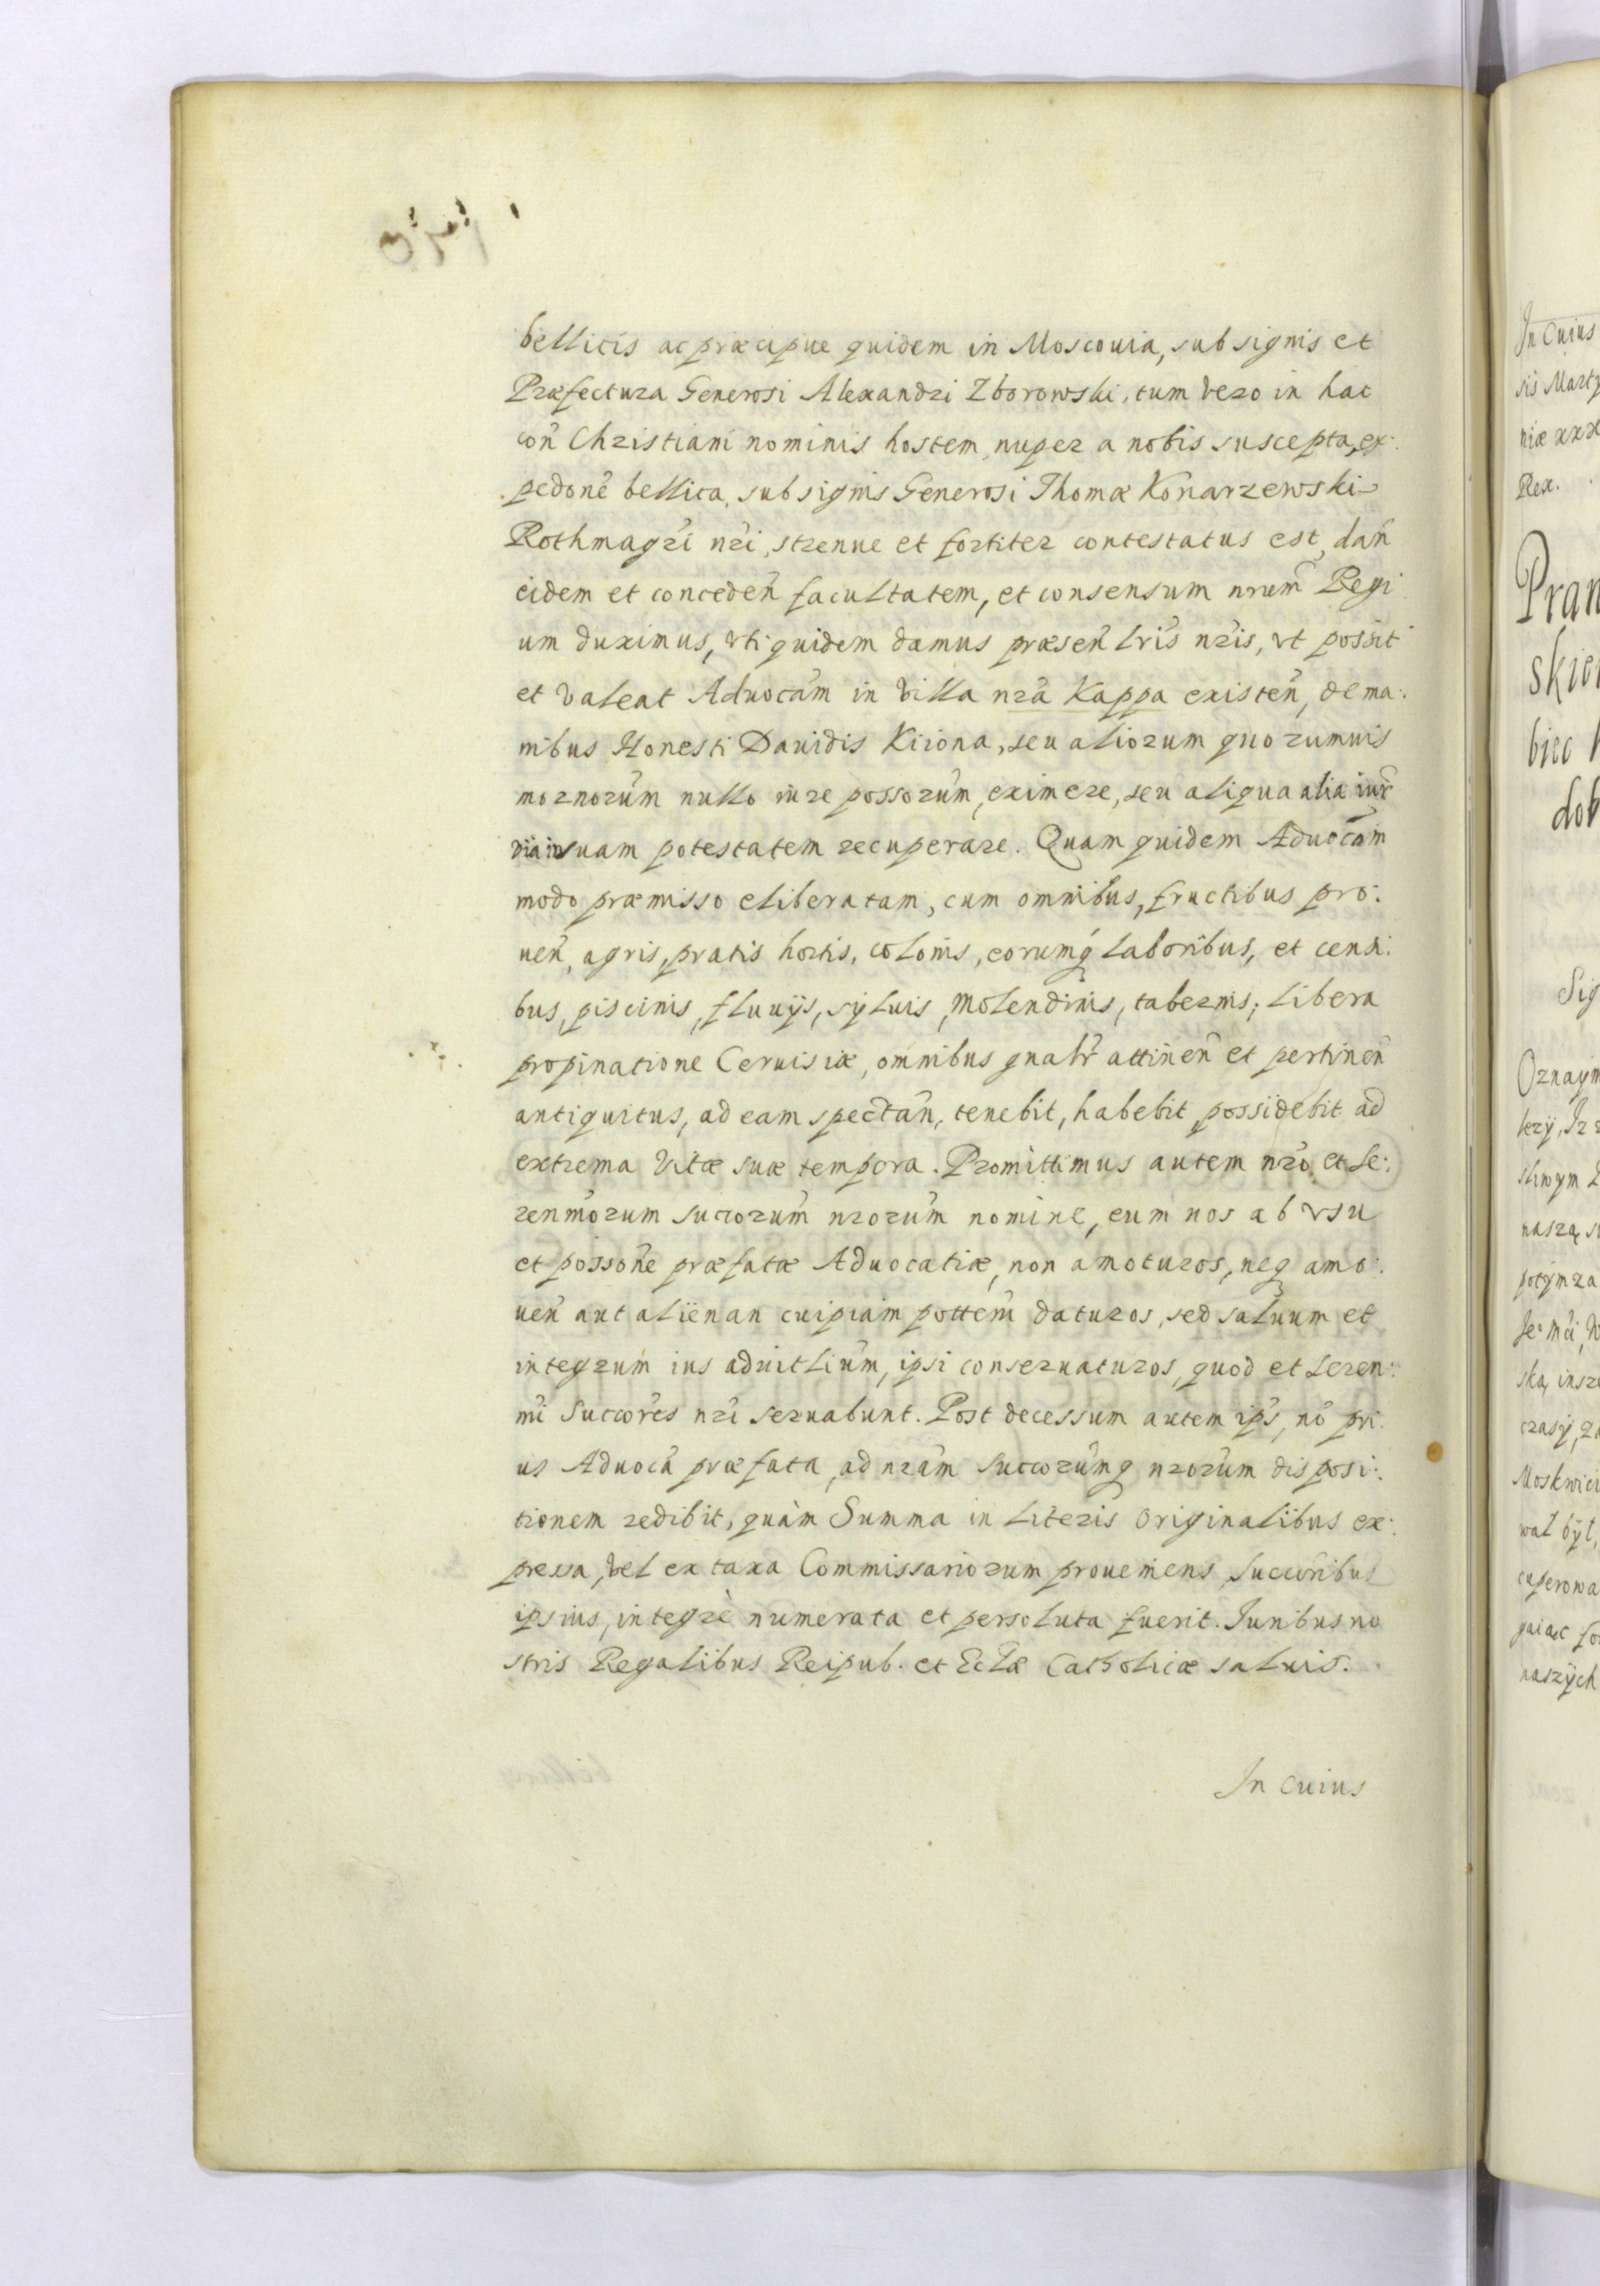 bellicis ac præcipue quidem in Moscouia, sub signis et
Præfectura Generosi Alexandri Zborowski, tum vero in hac
coñ Christiani nominis hostem, nuper a nobis suscepta, ex:
pedone bellica, sub signis Generosi Thomæ Konarzewski
Rothmagri nri, strenue et fortiter contestatus est, dan̄
eidem et conceden̄ facultatem, et consensum nrum Regi
um duximus, vti quidem damus præsen̄ lris nris, vt possit
et valeat Aduocam in villa nra Kappa existen̄, de ma:
nibus Honesti Dauidis Kiiona, seu aliorum quorumuis
modernorum nullo iure possorum, eximere, seu aliqua alia iur
via in suam potestatem recuperare. Quam quidem Aduocam
modo præmisso eliberatam, cum omnibus, fructibus pro:
uen̄, agris, pratis hortis, colonis, eorumq laboribus, et censi:
bus, piscinis, fluuijs, syluis, Molendinis, tabernis, libera
propinatione Ceruisiæ, omnibus gnalr attinen̄ et pertinen̄
antiquitus, ad eam spectan̄, tenebit, habebit, possidebit ad
extrema vitæ suæ tempora. Promittimus autem nro, et Se:
renmorum succorum nrorum nomine, eum nos ab vsu
et possone præfatæ Aduocatiæ, non amoturos, neq amo:
uen̄ aut aliënan cuipiam pottem daturos, sed saluum et
integrum ius aduitlium, ipsi conseruaturos, quod et Seren:
mi Succores nri seruabunt. Post decessum autem ips, no pri
us Aduoca præfata, ad nram succorumq nrorum disposi:
tionem redibit, quàm Summa in Literis Originalibus ex:
pressa, vel ex taxa Commissariorum proueniens, succoribus
ipsius, integrè numerata et persoluta fuerit. Iuribus no
stris Regalibus Reipub. et Eclæ Catholicæ saluis.
In cuius
In Cuius
sis Marty
niæ xxx
Rex.
Pran
skie
biec
dob
Sig
Oznaym
leży, Iz
sliwym
naszą
potym za
Je mci
ską, insz
czasy, z
Moskwici
wal był,
cuperowa
gaiąc
naszych